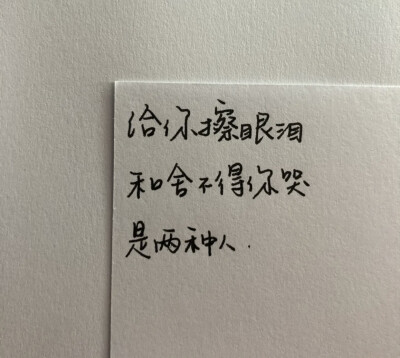 给你擦眼泪
和舍不得你哭
是两种人.